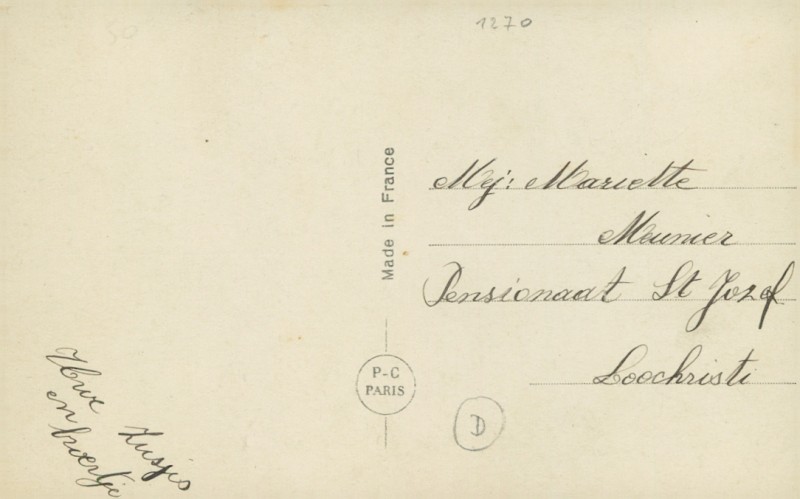 1270
Made in France
Mej: Mariette
Meunier
Pensionaat St Jozef
Loochristi
P-C
PARIS
D
Uwe Zusjes
en broertje